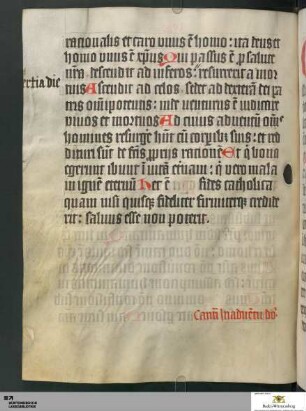 racionalis et caro unus ē homo : ita deus et
homo unus ē xp̄us Qui passus ē p̄ salute
nr̄a descendit ad inferos : resurrexit a mor
tertia die
tuis Ascendit ad celos sedet ad dexterā dei pa
tris om̄ipotentis : inde venturus ē iudicare
vivos et mortuos Ad cuius adventū om̄s
homines resurgē hn̄t cū corp̄ibz suis : et red
dituri sūt de factis p̄priis racionē Et q̄ bona
egerunt ibunt ī vitā et̄nam : q̄ vero mala
in ignē eternū Hec ē fides catholica
quam nisi quisqz fideliter firmiterqz credide
rit : salvus esse non poterit .
Baden-Württemberg